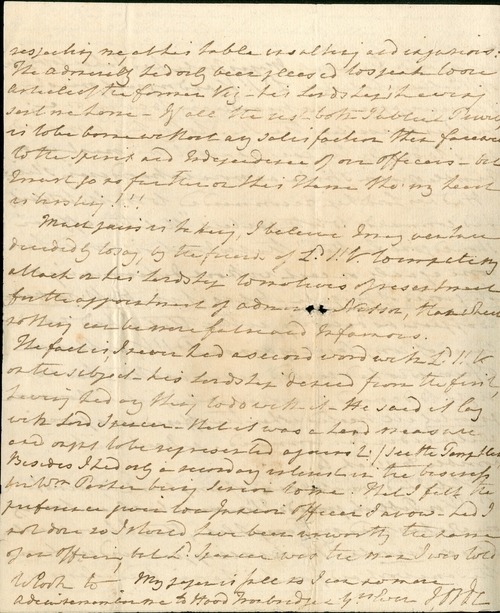 respecting me at his table insulting and injurious.
The Admiralty had only been pleased to speak to one
article of the former Viz – his Lordship's having
sent me home – If all the rest, both Public & Private
is to be borne without any satisfaction then farewell
to the spirit and Independence of our Officers – but
I must go no further on this Theme tho' my heart
is bursting!!!
Much pains is taking, I believe I may venture
decidedly to say, by the friends of Ld. St. V to impute my
attack on his Lordship to motives of resentment
for the appointment of Admiral Nelson, than which
nothing can be more false and Infamous.
The fact is I never had a second word with Ld. St. V
on the subject – his Lordship denied from the first,
having had any thing to do with it – He said it lay
with Lord Spencer – that it was a hard measure
and ought to be represented against
Besides I had only a secondary interest in the business
Sir Wm Parker being senior to me. That I felt the
preference given to a Junior Officer I avow. Had I
not done so I should have been unworthy the name
of an officer, but Ld. Spencer was the man I was told
to look to. My paper is full so I can no more